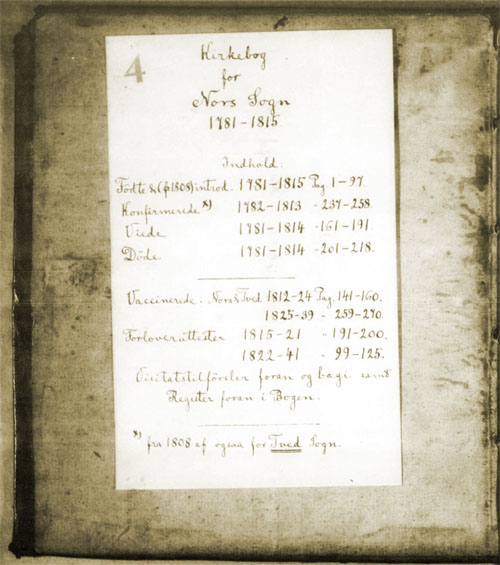 4
Kirkebog
for
Nors Sogn
1781-1815.
Indhold:
Födte & (p 1808) introd. 1781-1815 Pag. 1-97.
Konfirmerede x) 1782-1813 - 237-258.
Viede 1781-1814 - 161-191.
Döde 1781-1814 - 201-218.
Vaccinerede: Nors & Tved 1812-24 Pag. 141-160.
1825-39 - 259-270.
Forloverattester 1815-21 " 191-200.
1822-41 " 99-125.
Visitatstilförsler foran og bagi samt
Register foran i Bogen.
x) fra 1808 af ogsaa for Tved Sogn.